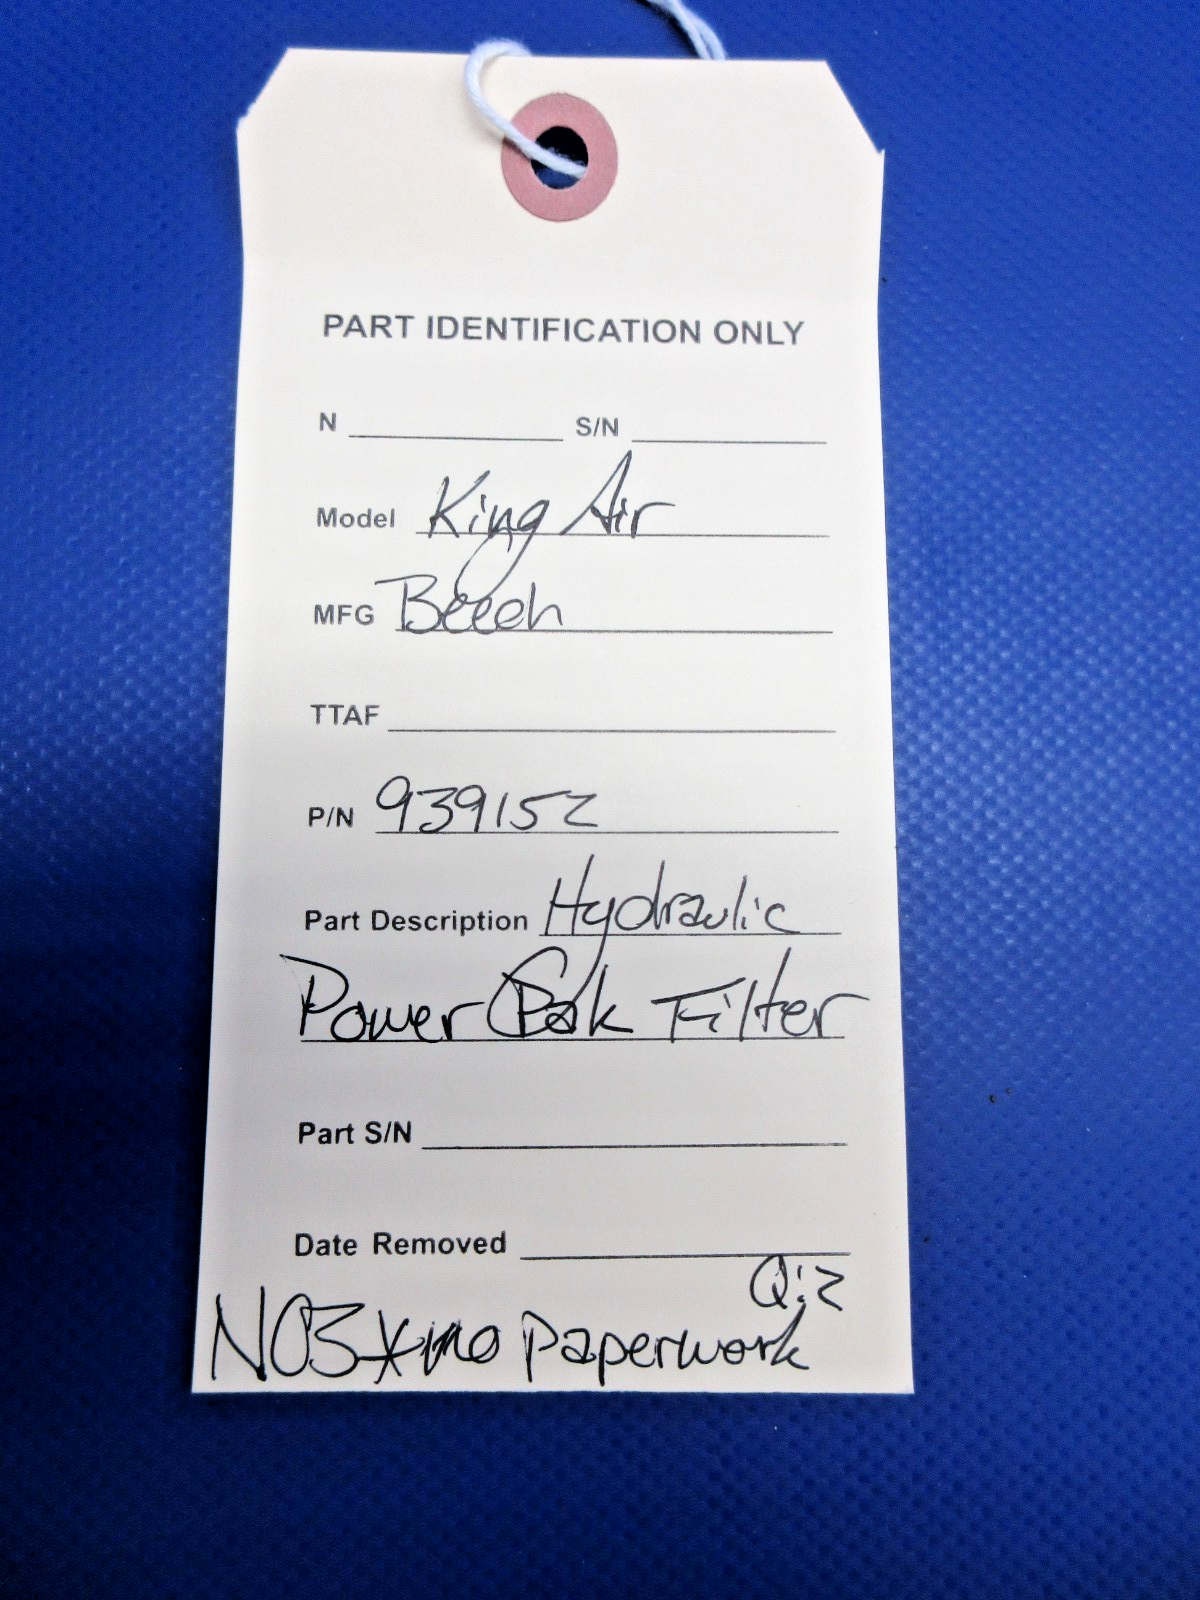 PART IDENTIFICATION ONLY
N S/N
Model King Air
MFG Beech
TTAF
P/N 939152
Part Description Hydraulic
Power Pak Filter
Part S/N
Date Removed
Q:2
NO3*no paperwork